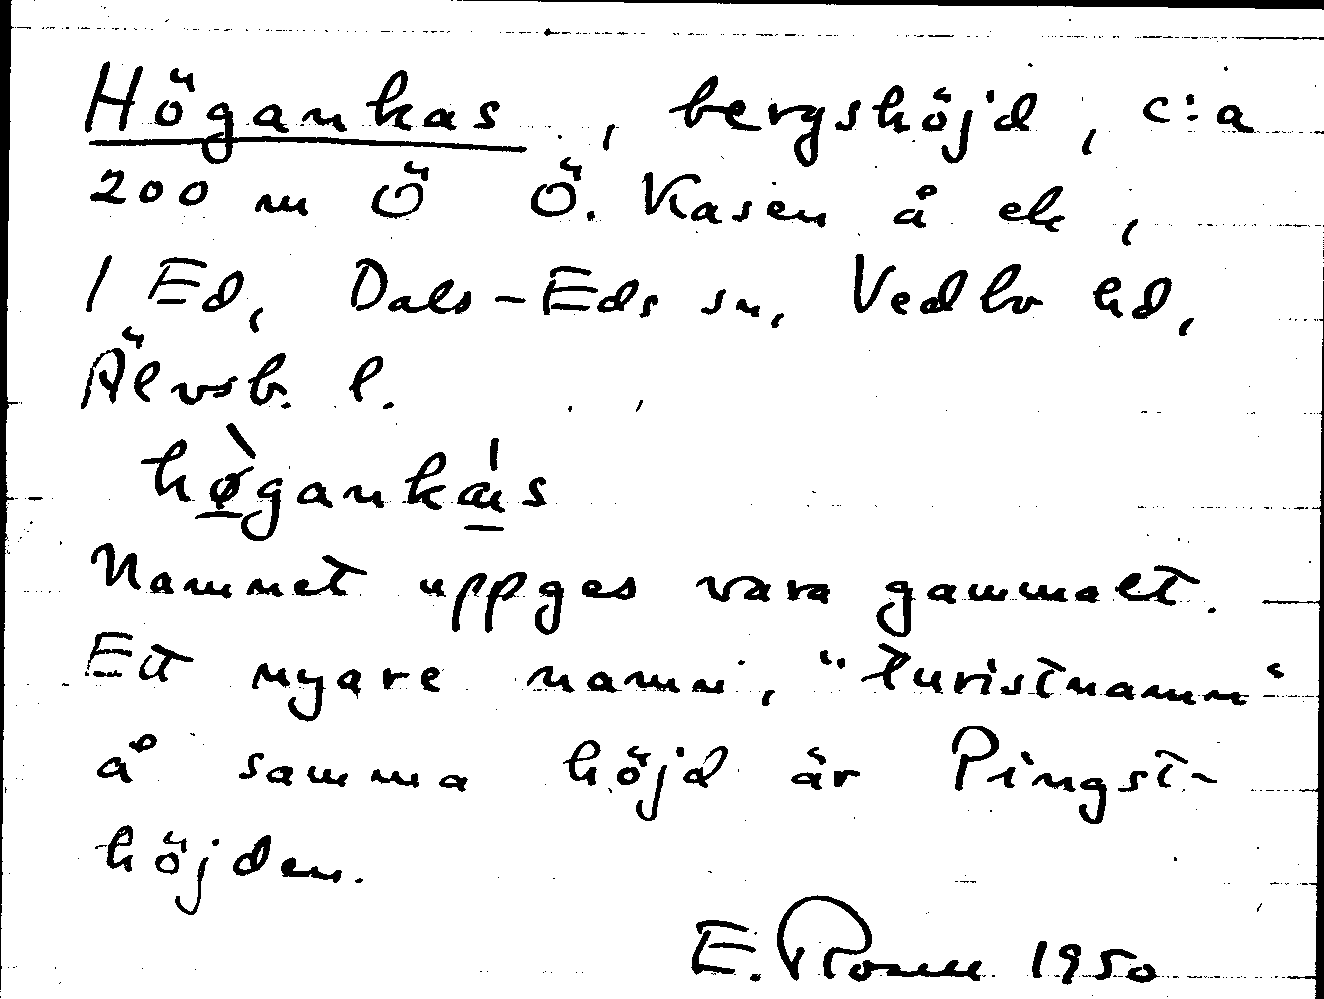 Högankas, bergshöjd, c:a
200 m Ö Ö. Kasen å ek,
1 Ed, Dals-Eds sn, Vedbo hd,
Älvsb. l.
hø̀gankás
Namnet uppges vara gammalt.
Ett nyare namn, "turistnamn"
å samma höjd är Pingst-
höjden.
E. Rosell 1950